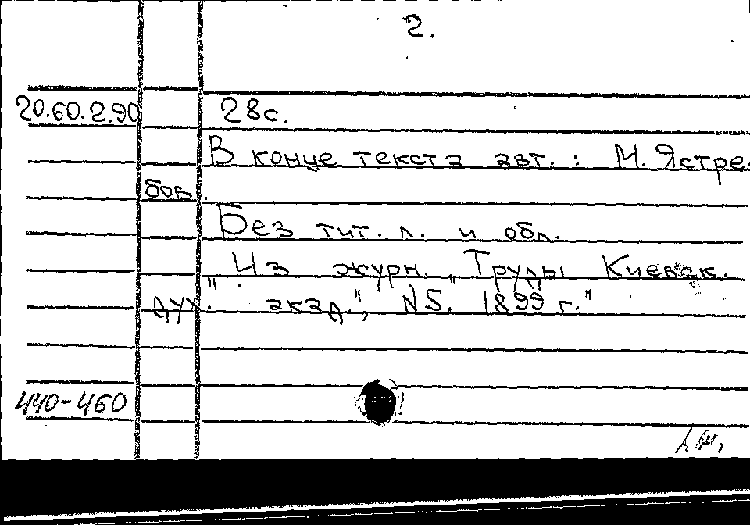 2.
20.60.2.90 28с.
В конце текста авт.: М. Ястре-
бов.
Без тит. л. и обл.
"Из журн. "Труды Киевск.
дух. акад.", N5. 1899 г."
440-460